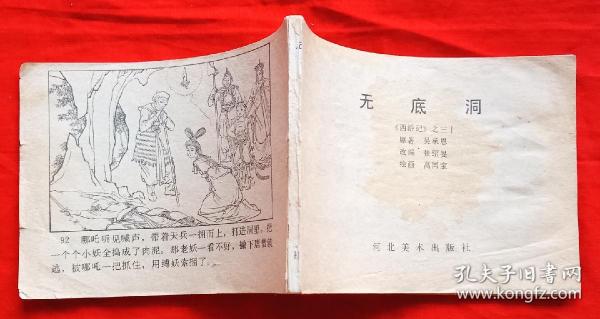 92 哪吒听见喊声，带着天兵一拥而上，打进洞里，把
一个个小妖全捣成了肉泥。那老妖一看不好，撇下唐僧就
逃，被哪吒一把抓住，用缚妖索捆了。
无底洞
《西游记》之三十
原著 吴承恩
改编
绘画 高同宝
河北美术出版社
孔夫子旧书网
www.kongfz.com